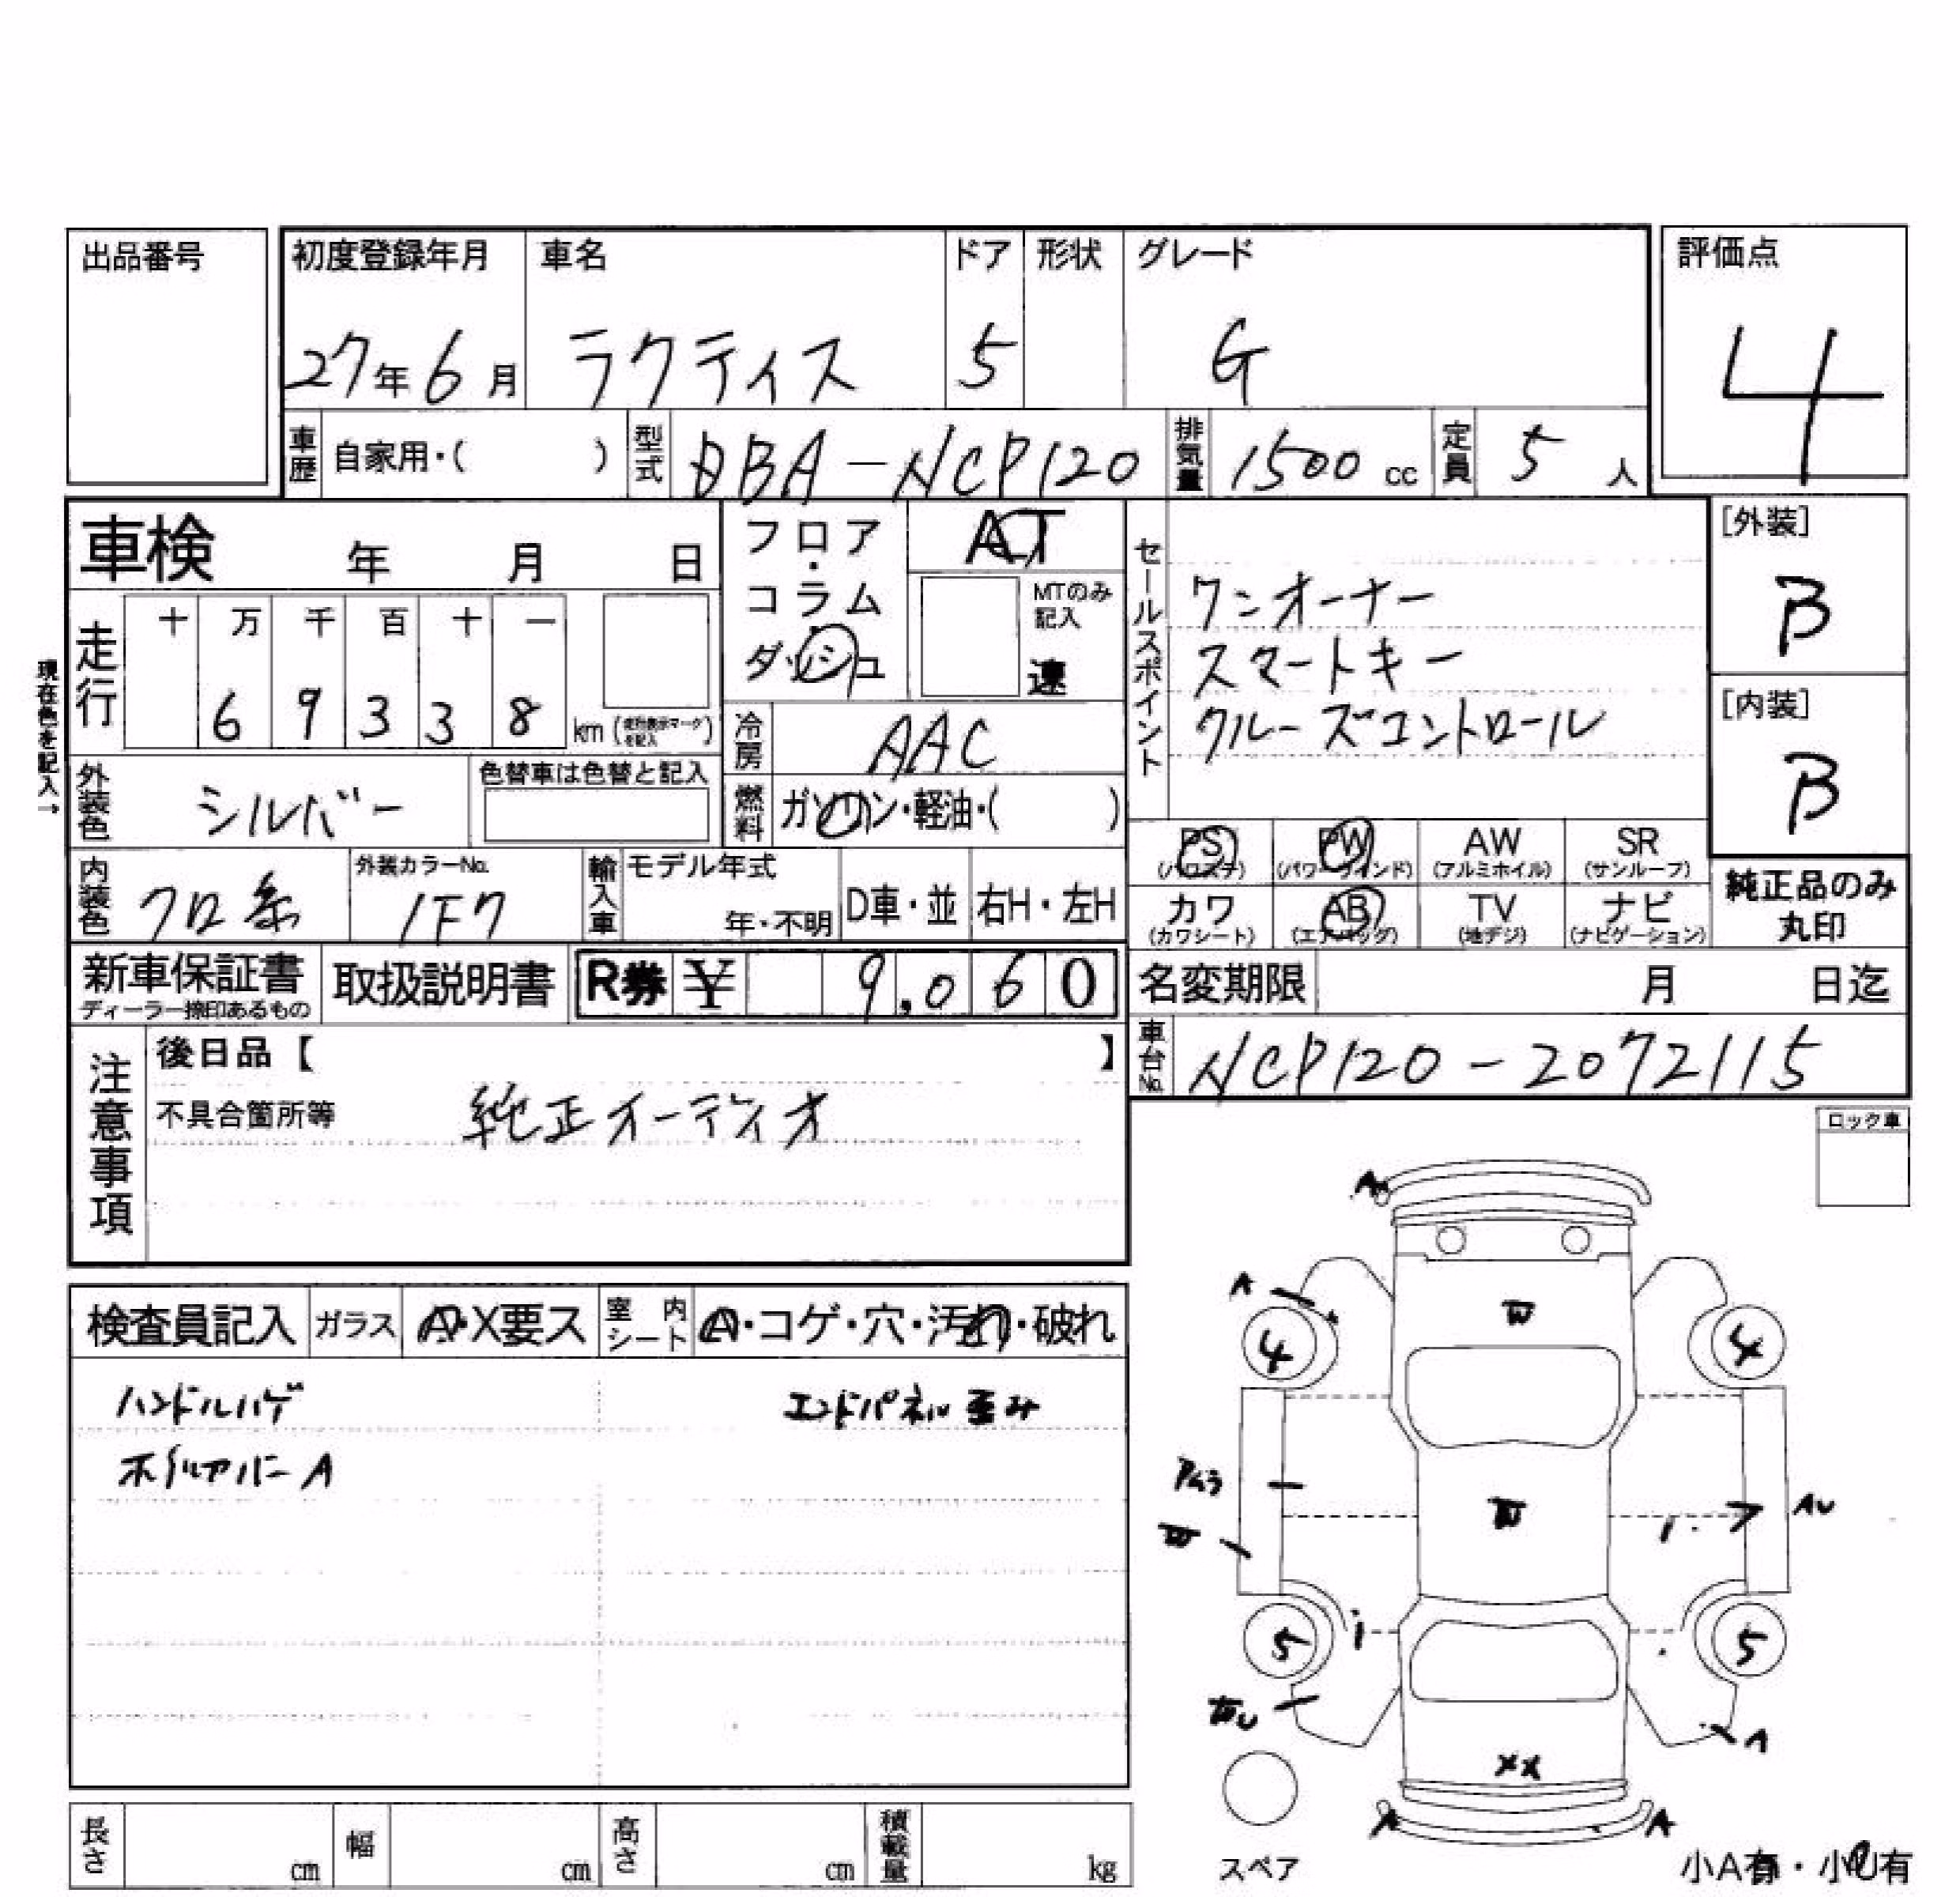 出品番号
初度登録年月 車名 ドア 形状 グレード 評価点
27年6月 ラクティス 5 G 4
車歴 自家用・( ) 型式 DBA-NCP120 排気量 1500cc 定員 5人
車検 年 月 日
フロア・コラム・ダッシュ AT
MTのみ記入 速
セールスポイント
ワンオーナー
スマートキー
クルーズコントロール
[外装]
B
[内装]
B
現在色を記入→
走行 十 万 千 百 十 一
6 9 3 3 8 km
冷房 AAC
外装色 シルバー 色替車は色替と記入
燃料 ガソリン・軽油・( )
PS (パワステ) PW (パワーウィンド) AW (アルミホイル) SR (サンルーフ)
カワ (カワシート) AB (エアバッグ) TV (地デジ) ナビ (ナビゲーション)
純正品のみ
丸印
内装色 クロ系 外装カラーNo. 1F7 輸入車 モデル年式 年・不明 D車・並 右H・左H
新車保証書 取扱説明書 R券 ¥ 9,060
ディーラー捺印あるもの
名変期限 月 日迄
車台No. NCP120-2072115
注意事項
後日品【 】
不具合箇所等 純正オーディオ
ロック車
検査員記入 ガラス A・X要ス 室内シート A・コゲ・穴・汚れ・破れ
ハンドルハゲ エンドパネル歪み
ホイルカバーA
A
A
W
4 4
W
W
AU
5 5
A
XX
A A
スペア
小A有・小U有
長さ cm 幅 cm 高さ cm 積載量 kg